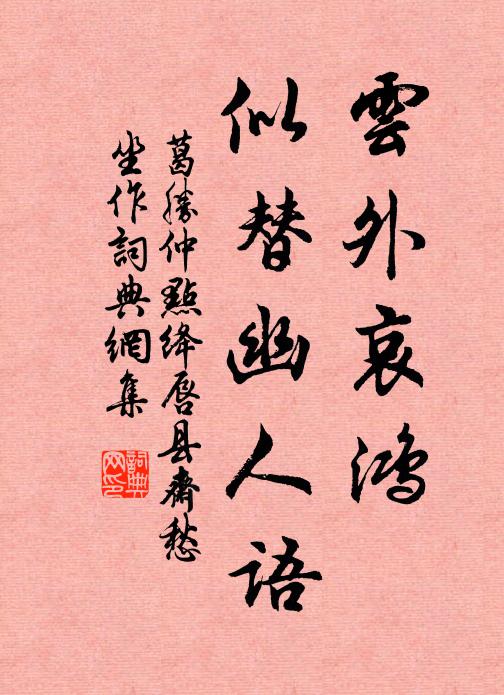 雲外哀鴻
似替幽人語
葛勝仲點絳唇县齋愁
坐作詞典網集
詞典
网印